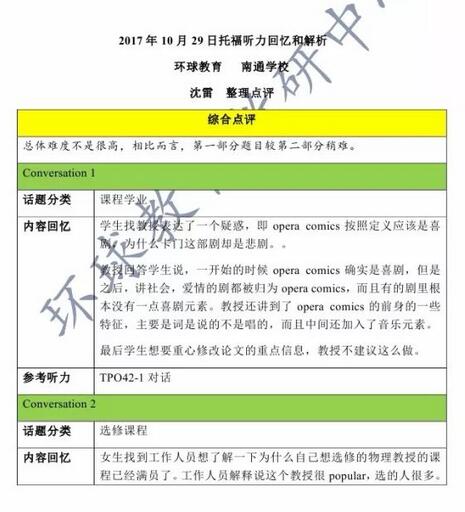 2017 年 10 月 29 日托福听力回忆和解析
环球教育 南通学校
沈雷 整理点评
综合点评
总体难度不是很高，相比而言，第一部分题目较第二部分稍难。
Conversation 1
话题分类 课程学业
内容回忆 学生找教授表达了一个疑惑，即 opera comics 按照定义应该是喜
剧，为什么卡门这部剧却是悲剧。。
教授回答学生说，一开始的时候 opera comics 确实是喜剧，但是
之后，讲社会，爱情的剧都被归为 opera comics，而且有的剧里根
本没有一点喜剧元素。教授还讲到了 opera comics 的前身的一些
特征，主要是词是说的不是唱的，而且中间还加入了音乐元素。
最后学生想要重心修改论文的重点信息，教授不建议这么做。
参考听力 TPO42-1 对话
Conversation 2
话题分类 选修课程
内容回忆 女生找到工作人员想了解一下为什么自己想选修的物理教授的课
程已经满员了。工作人员解释说这个教授很 popular，选的人很多。
环球教
研中